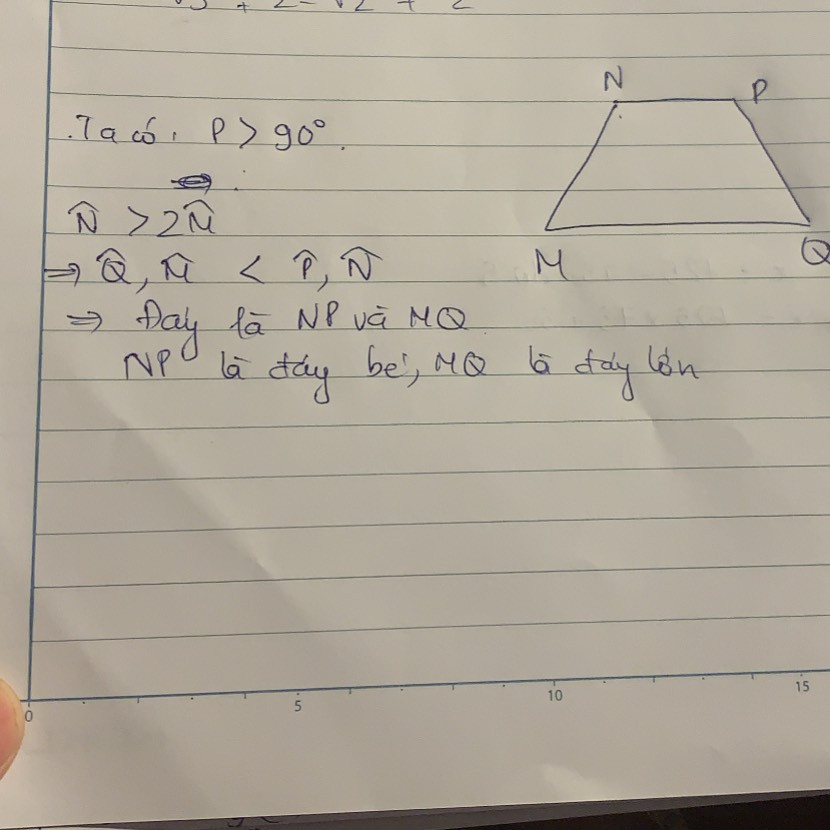 N
P
.Ta có, P > 90°.
N̂ > 2M̂
⇒ Q̂, M̂ < P̂, N̂
M
Q
⇒ Đáy là NP và MQ
NP là đáy bé, MQ là đáy lớn
0
5
10
15